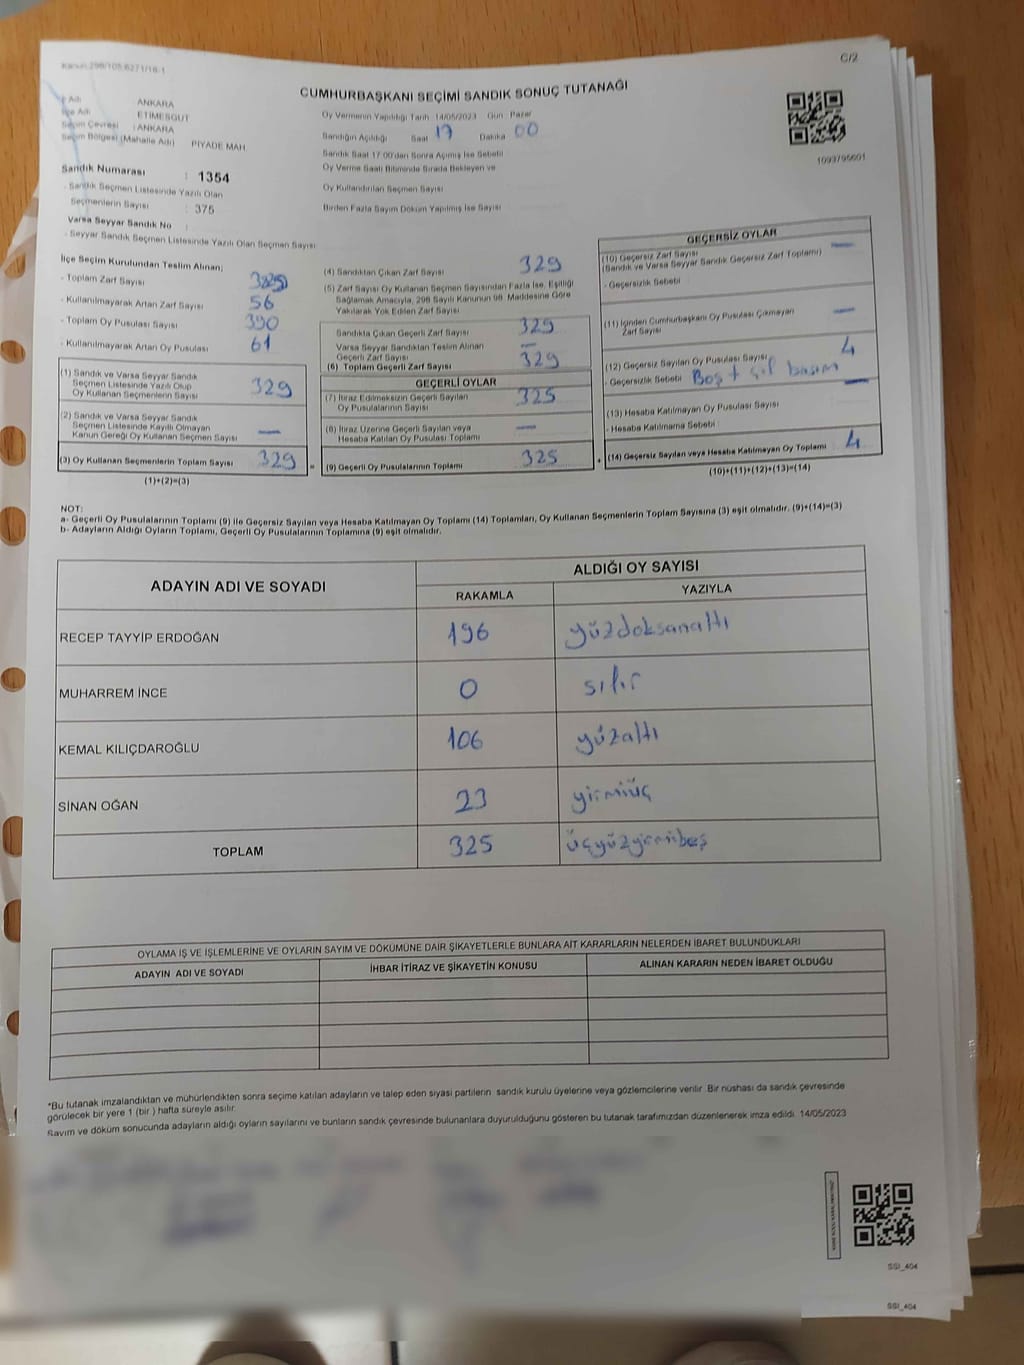 Kanun:298/105;6271/18-1
C/2
CUMHURBAŞKANI SEÇİMİ SANDIK SONUÇ TUTANAĞI
İl Adı ANKARA
İlçe Adı ETİMESGUT
Seçim Çevresi : ANKARA
Seçim Bölgesi (Mahalle Adı) PİYADE MAH.
Sandık Numarası : 1354
- Sandık Seçmen Listesinde Yazılı Olan
Seçmenlerin Sayısı : 375
Varsa Seyyar Sandık No :
- Seyyar Sandık Seçmen Listesinde Yazılı Olan Seçmen Sayısı:
Oy Vermenin Yapıldığı Tarih 14/05/2023 Gün : Pazar
Sandığın Açıldığı Saat 17 Dakika 00
Sandık Saat 17:00'den Sonra Açmış İse Sebebi
Oy Verme Saati Bitiminde Sırada Bekleyen ve
Oy Kullandırılan Seçmen Sayısı
Birden Fazla Sayım Döküm Yapılmış İse Sayısı
1093795601
İlçe Seçim Kurulundan Teslim Alınan;
- Toplam Zarf Sayısı 385
- Kullanılmayarak Artan Zarf Sayısı 56
- Toplam Oy Pusulası Sayısı 390
- Kullanılmayarak Artan Oy Pusulası 61
(1) Sandık ve Varsa Seyyar Sandık
Seçmen Listesinde Yazılı Olup
Oy Kullanan Seçmenlerin Sayısı 329
(2) Sandık ve Varsa Seyyar Sandık
Seçmen Listesinde Kayıtlı Olmayan
Kanun Gereği Oy Kullanan Seçmen Sayısı —
(3) Oy Kullanan Seçmenlerin Toplam Sayısı 329 =
(1)+(2)=(3)
(4) Sandıktan Çıkan Zarf Sayısı 329
(5) Zarf Sayısı Oy Kullanan Seçmen Sayısından Fazla İse, Eşitliği
Sağlamak Amacıyla, 298 Sayılı Kanunun 98. Maddesine Göre
Yakılarak Yok Edilen Zarf Sayısı
Sandıkta Çıkan Geçerli Zarf Sayısı 329
Varsa Seyyar Sandıktan Teslim Alınan
Geçerli Zarf Sayısı —
(6) Toplam Geçerli Zarf Sayısı 329
GEÇERLİ OYLAR
(7) İtiraz Edilmeksizin Geçerli Sayılan
Oy Pusulalarının Sayısı 325
(8) İtiraz Üzerine Geçerli Sayılan veya
Hesaba Katılan Oy Pusulası Toplamı —
(9) Geçerli Oy Pusulalarının Toplamı 325 +
GEÇERSİZ OYLAR
(10) Geçersiz Zarf Sayısı —
(Sandık ve Varsa Seyyar Sandık Geçersiz Zarf Toplamı)
- Geçersizlik Sebebi
(11) İçinden Cumhurbaşkanı Oy Pusulası Çıkmayan
Zarf Sayısı —
(12) Geçersiz Sayılan Oy Pusulası Sayısı 4
- Geçersizlik Sebebi Boş + çif basım
(13) Hesaba Katılmayan Oy Pusulası Sayısı —
- Hesaba Katılmama Sebebi
(14) Geçersiz Sayılan veya Hesaba Katılmayan Oy Toplamı 4
(10)+(11)+(12)+(13)=(14)
NOT:
a- Geçerli Oy Pusulalarının Toplamı (9) ile Geçersiz Sayılan veya Hesaba Katılmayan Oy Toplamı (14) Toplamları, Oy Kullanan Seçmenlerin Toplam Sayısına (3) eşit olmalıdır. (9)+(14)=(3)
b- Adayların Aldığı Oyların Toplamı, Geçerli Oy Pusulalarının Toplamına (9) eşit olmalıdır.
ADAYIN ADI VE SOYADI
ALDIĞI OY SAYISI
RAKAMLA YAZIYLA
RECEP TAYYİP ERDOĞAN 196 yüzdoksanaltı
MUHARREM İNCE 0 sıfır
KEMAL KILIÇDAROĞLU 106 yüzaltı
SİNAN OĞAN 23 yirmiüç
TOPLAM 325 üçyüzyirmibeş
OYLAMA İŞ VE İŞLEMLERİNE VE OYLARIN SAYIM VE DÖKÜMÜNE DAİR ŞİKAYETLERLE BUNLARA AİT KARARLARIN NELERDEN İBARET BULUNDUKLARI
ADAYIN ADI VE SOYADI İHBAR İTİRAZ VE ŞİKAYETİN KONUSU ALINAN KARARIN NEDEN İBARET OLDUĞU
*Bu tutanak imzalandıktan ve mühürlendikten sonra seçime katılan adayların ve talep eden siyasi partilerin sandık kurulu üyelerine veya gözlemcilerine verilir. Bir nüshası da sandık çevresinde
görülecek bir yere 1 (bir ) hafta süreyle asılır.
Sayım ve döküm sonucunda adayların aldığı oyların sayılarını ve bunların sandık çevresinde bulunanlara duyurulduğunu gösteren bu tutanak tarafımızdan düzenlenerek imza edildi. 14/05/2023
SSI_404
SSI_404